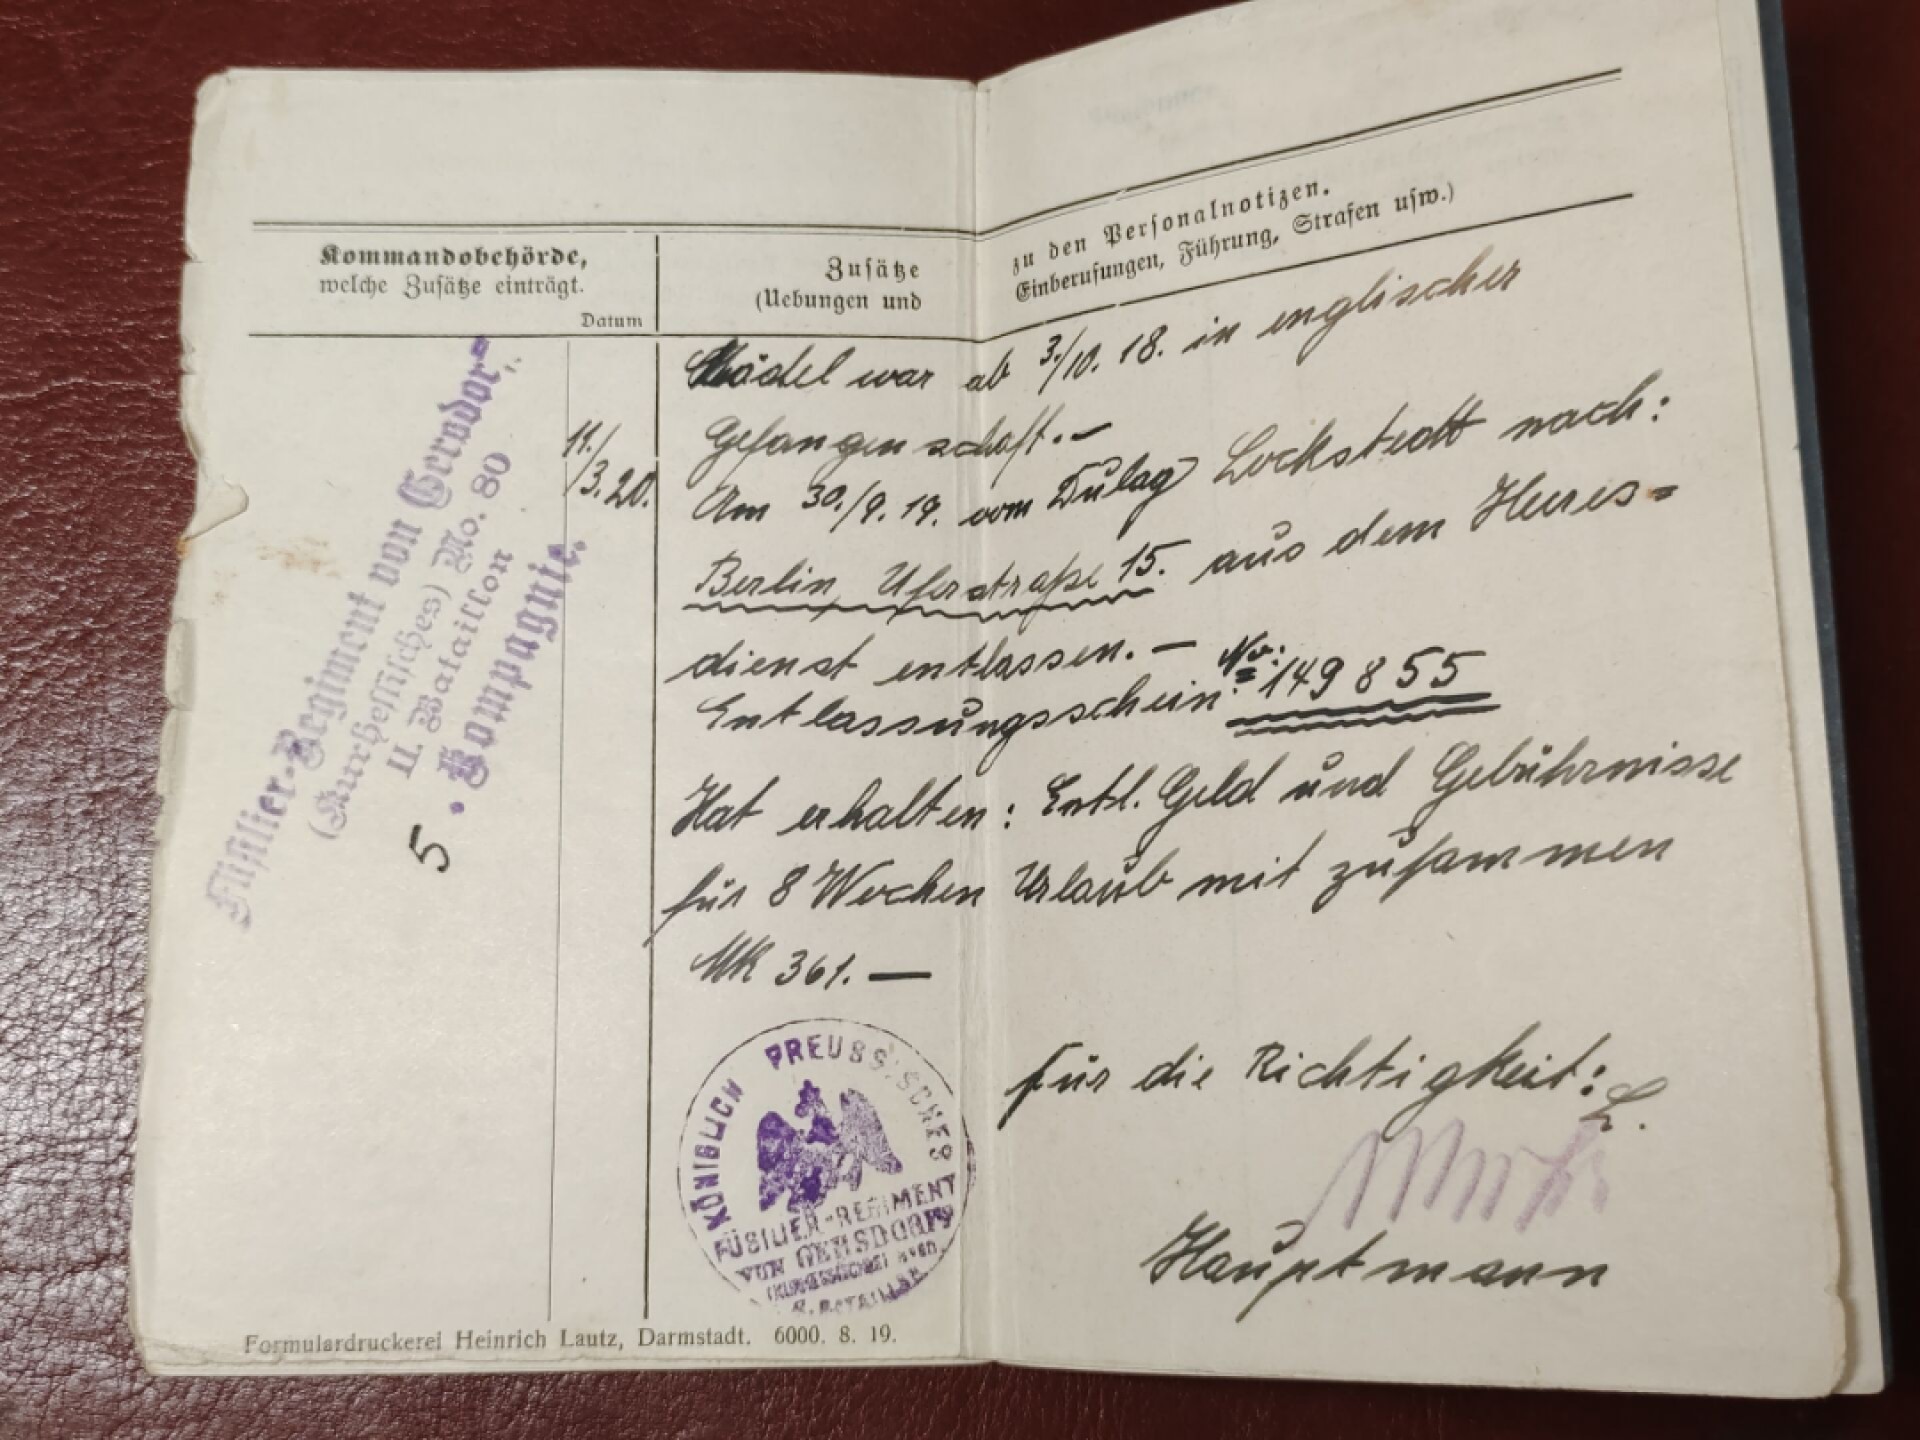 Kommandobehörde,
welche Zusätze einträgt.
Datum
Zusätze zu den Personalnotizen.
(Uebungen und Einberufungen, Führung, Strafen usw.)
Füsilier-Regiment von Gersdorff
(Kurhessisches) No. 80
II. Bataillon
5. Kompagnie.
11./3.20.
Mädel war ab 3./10. 18. in englischer
Gefangenschaft.—
Am 30./9. 19. vom Dulag Lockstedt nach:
Berlin, Uferstraße 15. aus dem Heeres=
dienst entlassen.—
Entlassungsschein No: 149855
Hat erhalten: Entl. Geld und Gebührnisse
für 8 Wochen Urlaub mit zusammen
Mk 361.—
KÖNIGLICH PREUSSISCHES
FÜSILIER-REGIMENT
VON GERSDORFF
(KURHESSISCHES) No 80
II. BATAILLON
Für die Richtigkeit:
Hauptmann
Formulardruckerei Heinrich Lautz, Darmstadt. 6000. 8. 19.